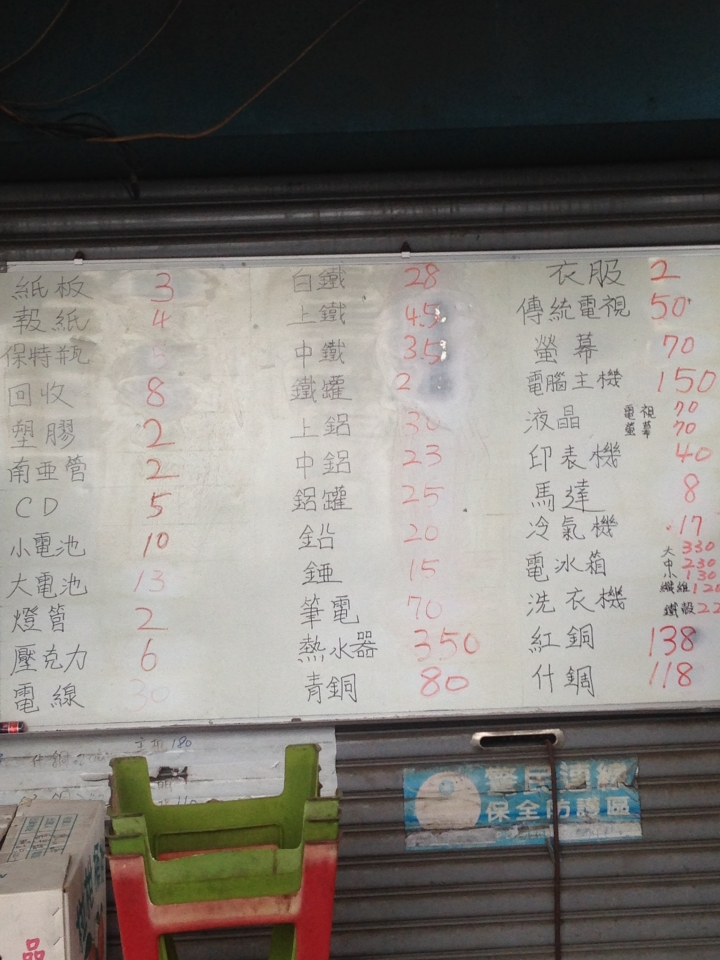 紙板 3
報紙 4
保特瓶 5
回收 8
塑膠 2
南亜管 2
CD 5
小電池 10
大電池 13
燈管 2
壓克力 6
電線 30
白鐵 28
上鐵 4.5
中鐵 3.5
鐵罐 2
上鋁 30
中鋁 23
鋁罐 25
鉛 20
錘 15
筆電 70
熱水器 350
青銅 80
衣服 2
傳統電視 50
螢幕 70
電腦主機 150
液晶 電視 70
螢幕 70
印表機 40
馬達 8
冷氣機 17
電冰箱 大 330
中 230
小 130
洗衣機 纖維 120
鐵殼 22
紅銅 138
什銅 118
主机 180
警民連線
保全防護區
品